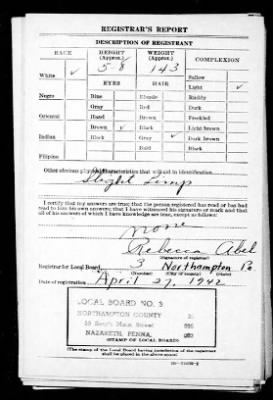 REGISTRAR'S REPORT
DESCRIPTION OF REGISTRANT
RACE HEIGHT (Approx.) WEIGHT (Approx.) COMPLEXION
5 8 143
White ✓ EYES HAIR Sallow
Light ✓
Negro Blue Blonde Ruddy
Gray Red Dark
Oriental Hazel Brown Freckled
Brown ✓ Black Light brown
Indian Black Gray ✓ Dark brown
Bald Black
Filipino
Other obvious physical characteristics that will aid in identification
Slight Limp
I certify that my answers are true; that the person registered has read or has had
read to him his own answers; that I have witnessed his signature or mark and that
all of his answers of which I have knowledge are true, except as follows:
none
Rebecca Abel
(Signature of registrar)
Registrar for Local Board 3 Northampton Pa
(Number) (City or county) (State)
Date of registration April 27, 1942
LOCAL BOARD NO. 3
NORTHAMPTON COUNTY
South Main Street
NAZARETH, PENNA.
(STAMP OF LOCAL BOARD)
(The stamp of the Local Board having jurisdiction of the registrant
shall be placed in the above space)